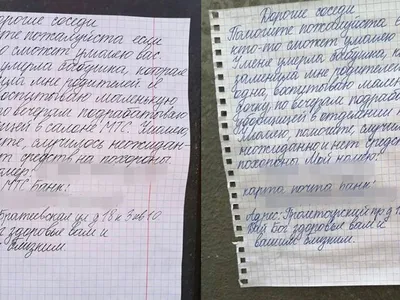 орогие соседи
те пожалуйста если
о сможет умаляю вас
умерла бабушка, которая
ила мне родителей. я
воспитываю маленькую
по вечерам подрабатываю
ицей в салоне МТС. Умаляю,
те, случилось неожидан-
ет средств на похороны
омер:
МТС Банк:
ул д 18 к 3 кв 10
ог здоровья вам и
близким.
Дорогие соседи
Помогите пожалуйста е
кто-то сможет умаляю
У меня умерла бабушка, к
заменила мне родителе
одна, воспитываю мален
дочку, по вечерам подраба
уборщицей в отделении
Умаляю, помогите, случил
неожиданно и нет средс
похороны. Мой номер:
карта почта банк:
Адрес: Пролетарский пр д 1
Дай Бог здоровья вам и
вашим близким.